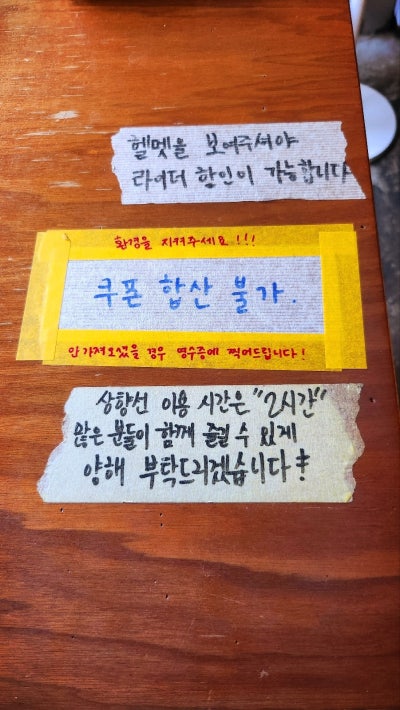 헬멧을 보여주셔야
라이더 할인이 가능합니다
환경을 지켜주세요!!!
쿠폰 합산 불가.
안 가져오셨을 경우 영수증에 찍어드립니다!
상향선 이용 시간은 "2시간"
많은 분들이 함께 즐길 수 있게
양해 부탁드리겠습니다!